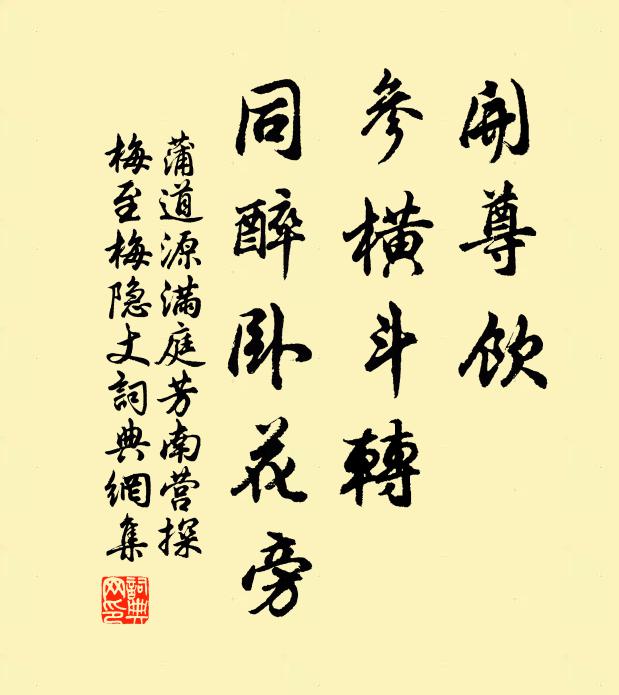 開尊飲
參橫斗轉
同醉臥花旁
蒲道源滿庭芳南营探
梅至梅隐丈詞典網集
詞典
网印